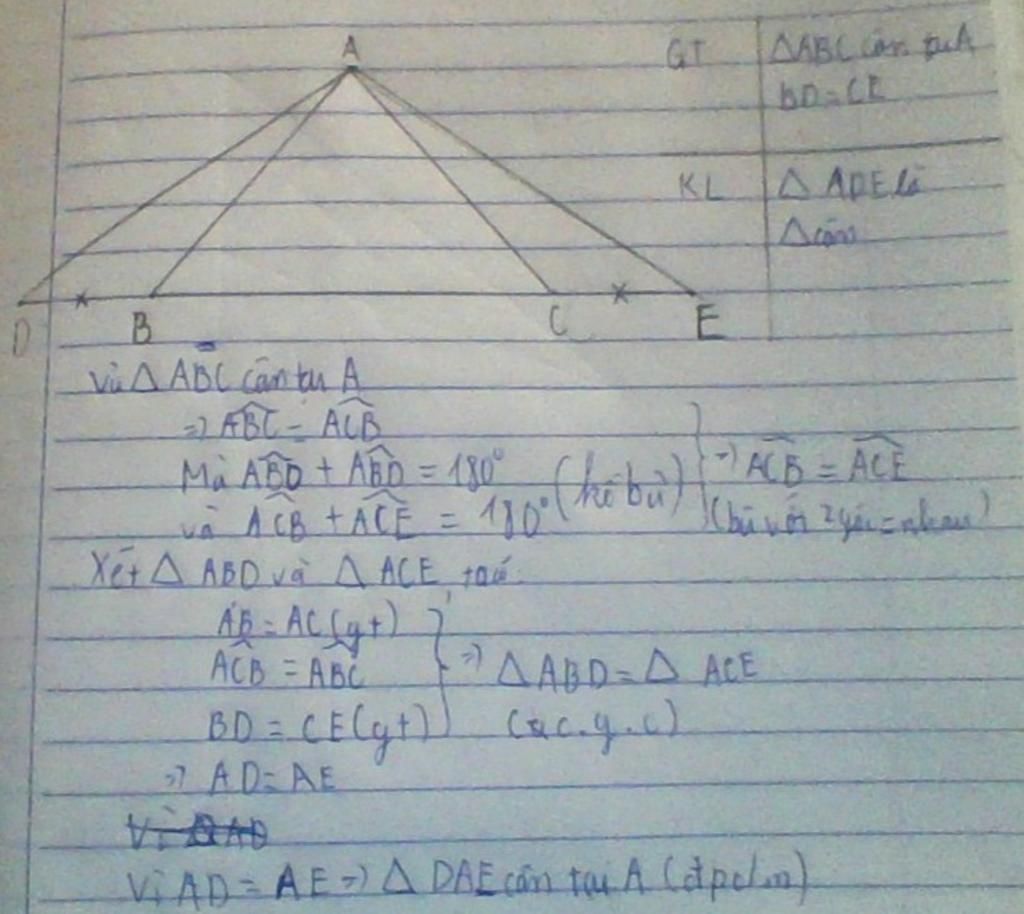 A
GT
△ABC cân tại A
BD = CE
KL
△ ADE là
△ cân
D B C E
Vì △ ABC cân tại A
=> ABC = ACB
Mà ABD + ABD = 180° (kề bù)
và ACB + ACE = 180°
=> ACB = ACE
(bù với 2 góc = nhau)
Xét △ ABD và △ ACE ta có:
AB = AC (gt)
ACB = ABC
BD = CE (gt)
=> △ ABD = △ ACE
(c.g.c)
=> AD = AE
Vì △ AD
Vì AD = AE => △ DAE cân tại A (đpcm)